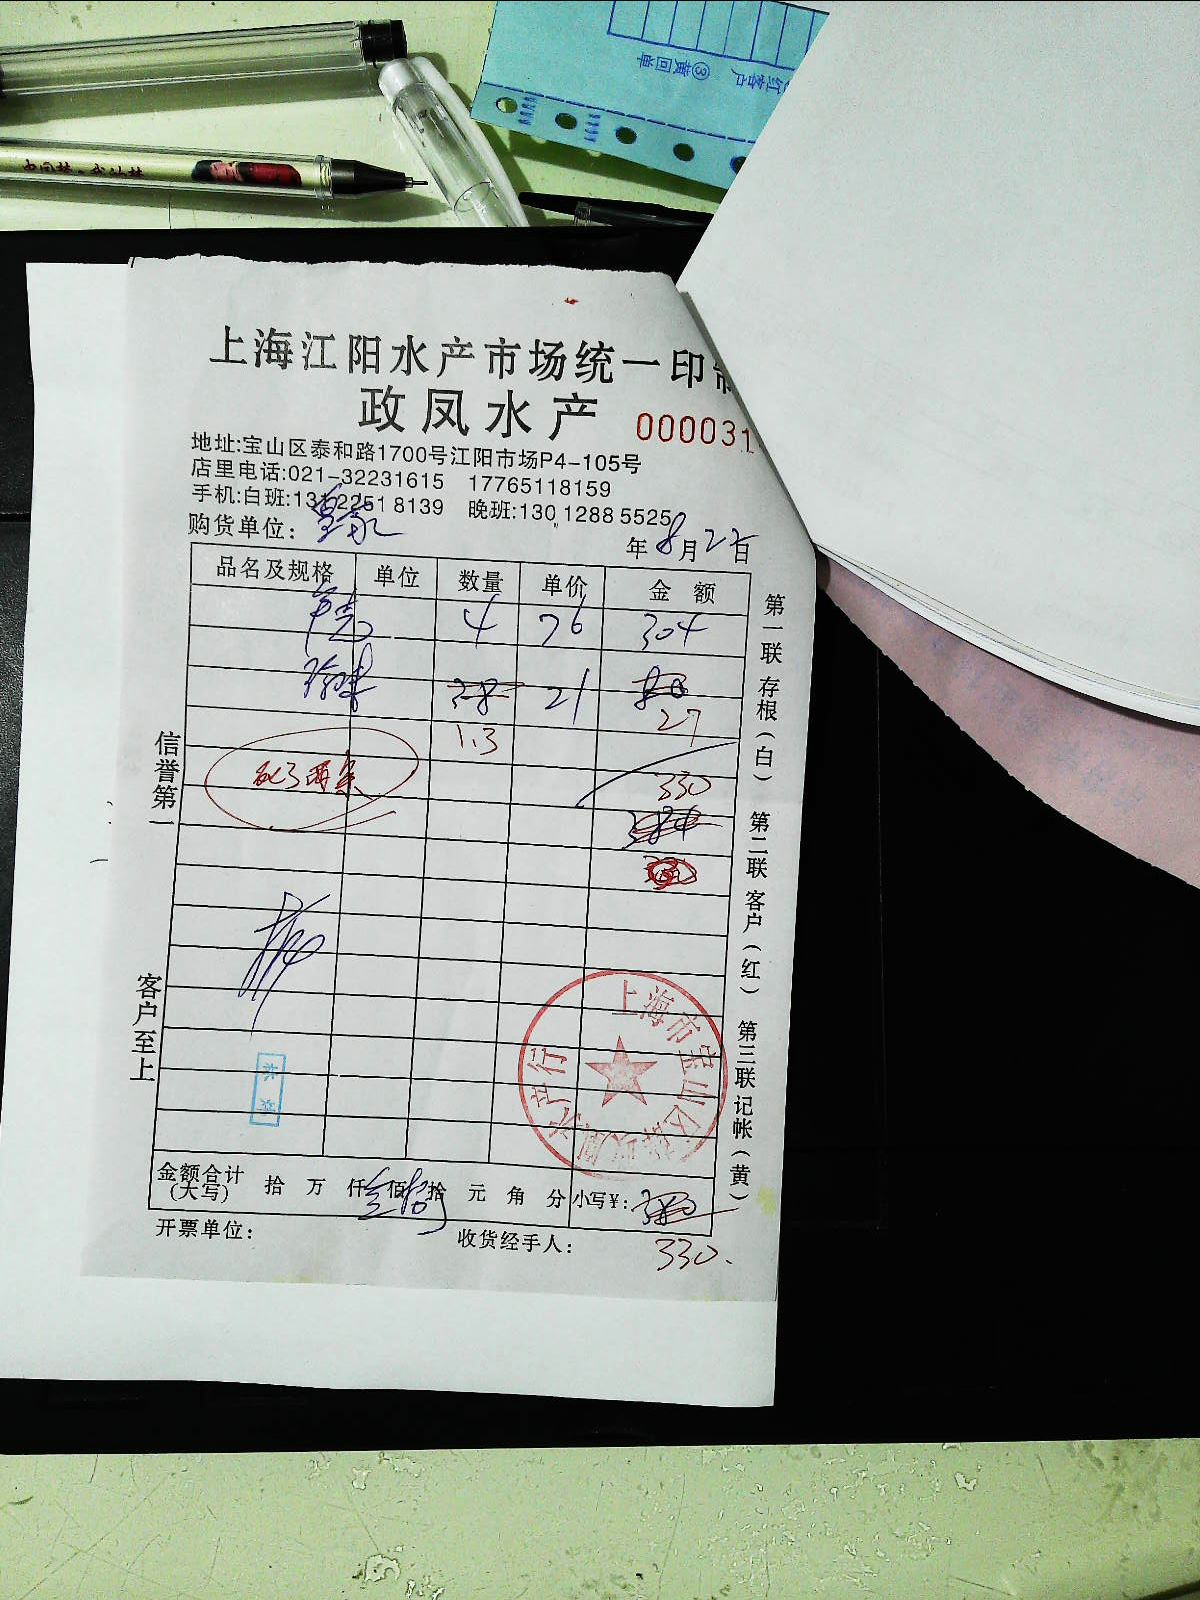 红客户
③黄回单
上海江阳水产市场统一印制
政凤水产 000031
地址:宝山区泰和路1700号江阳市场P4-105号
店里电话:021-32231615 17765118159
手机:白班:131 2251 8139 晚班:130 1288 5525
购货单位:
年8月22日
品名及规格 单位 数量 单价 金额
4 76 304
21
27
1.3
死了两条
330
384
金额合计(大写) 拾 万 仟 佰 拾 元 角 分 小写¥: 380
330.
开票单位: 收货经手人:
信誉第一
客户至上
第一联 存根(白) 第二联 客户(红) 第三联 记帐(黄)
上海市宝山区
水产行